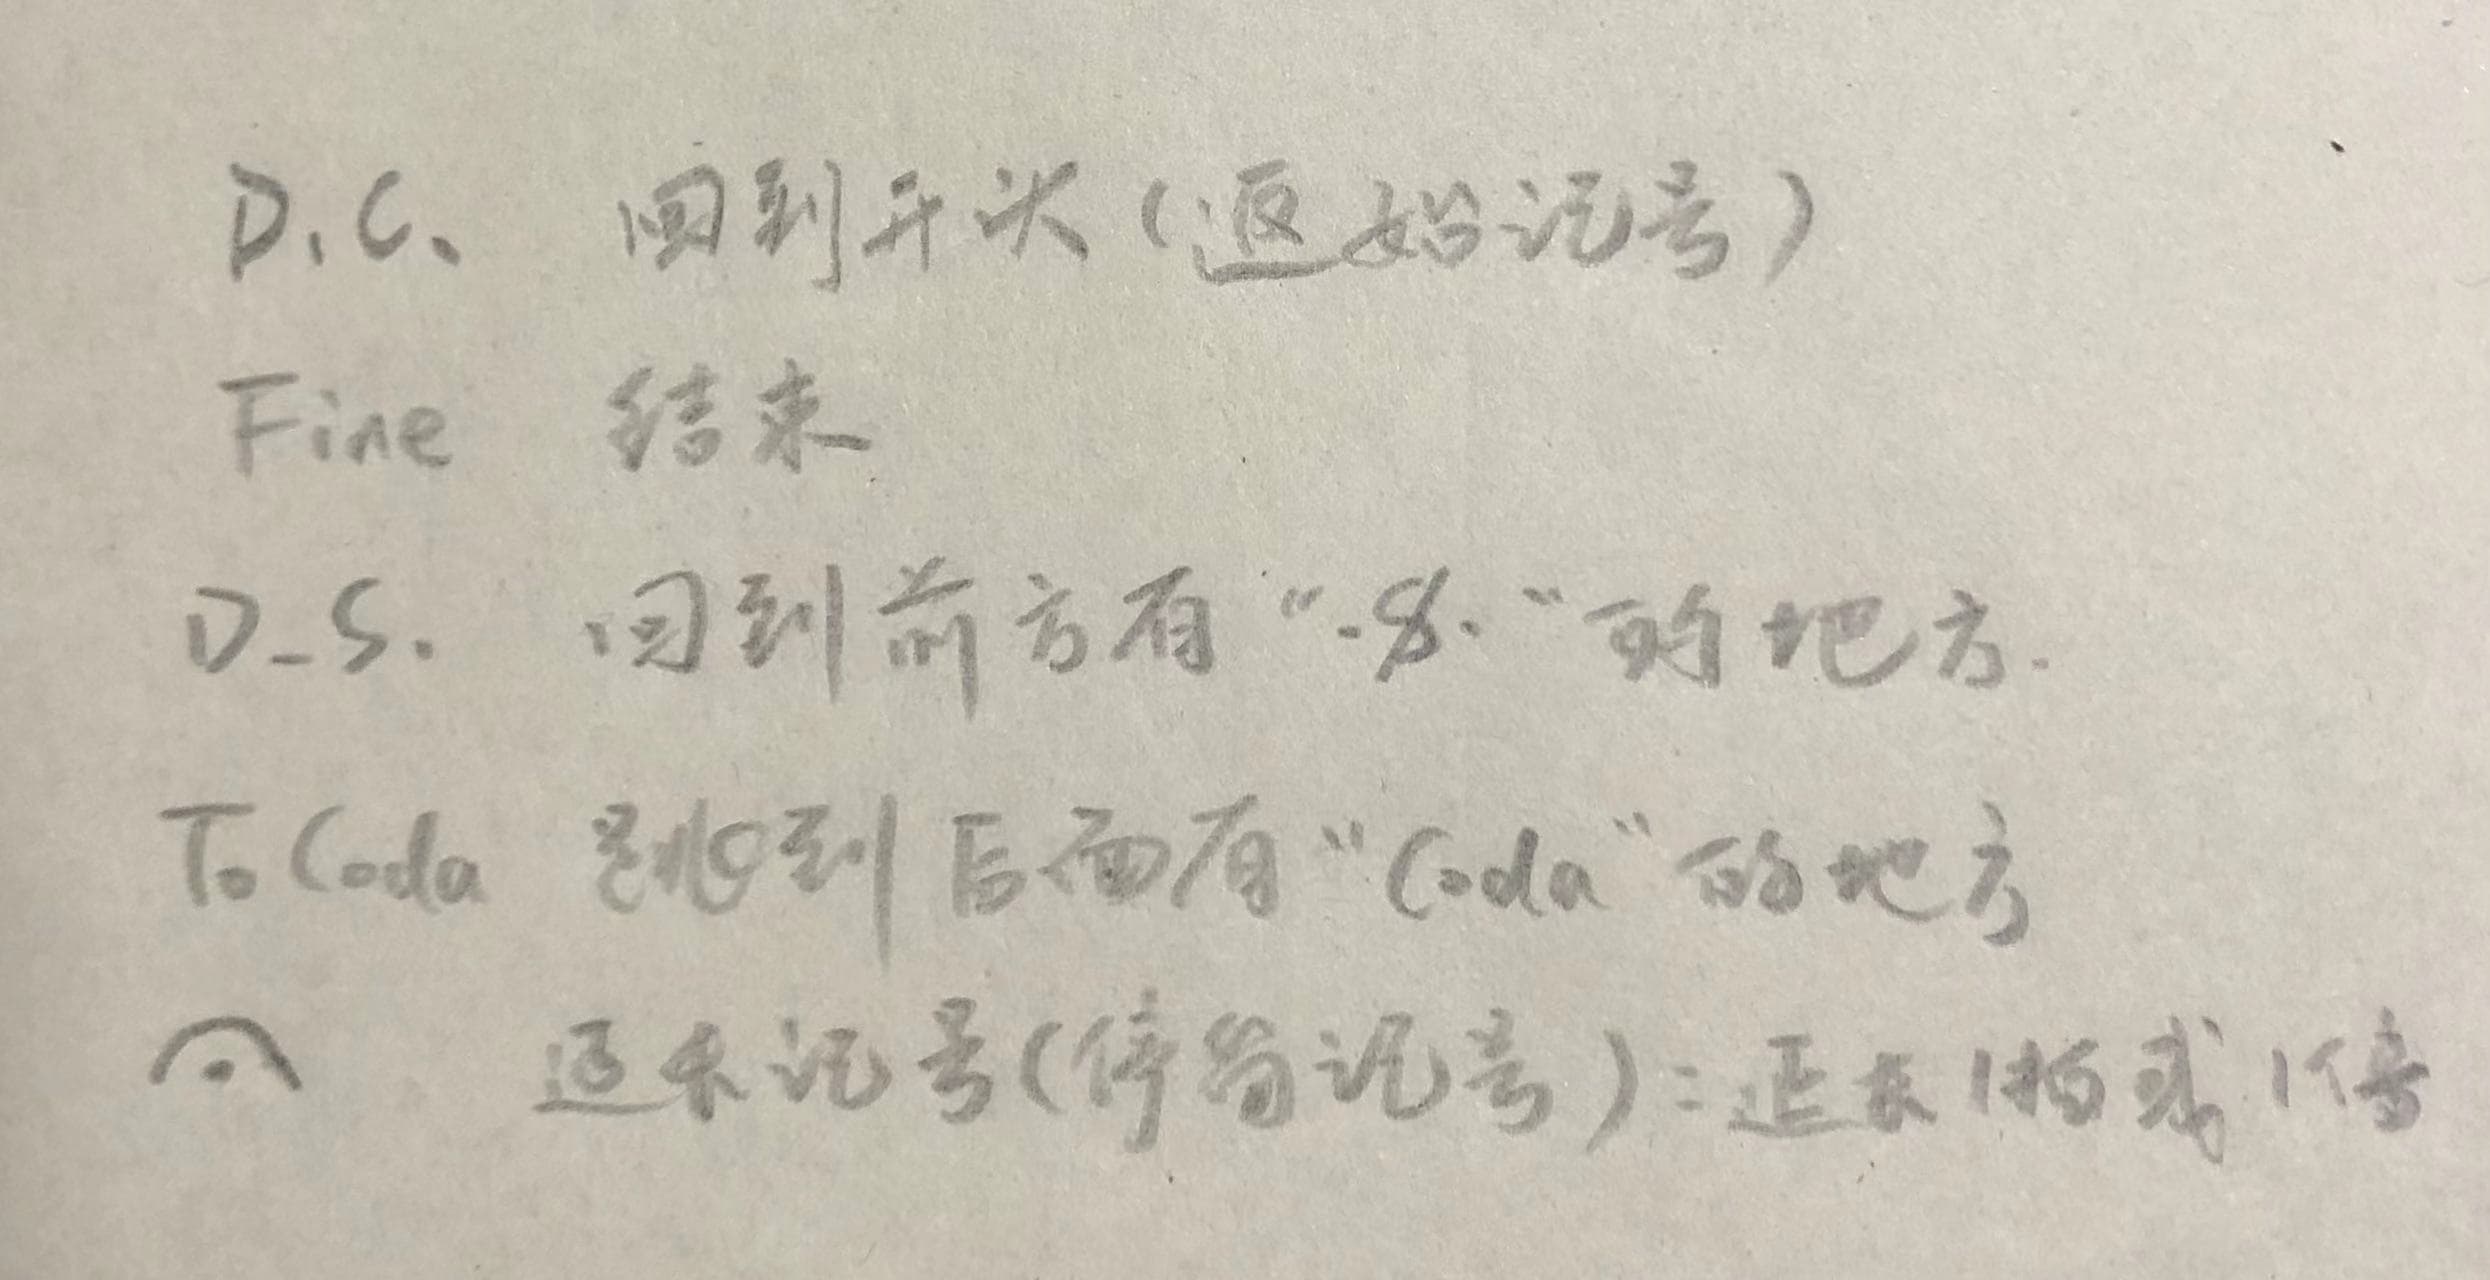 D.C. 回到开头(返始记号)
Fine 结束
D.S. 回到前方有“𝄋”的地方.
To Coda 跳到后面有“Coda”的地方
𝄐 延长记号(停留记号):延长1拍或1倍